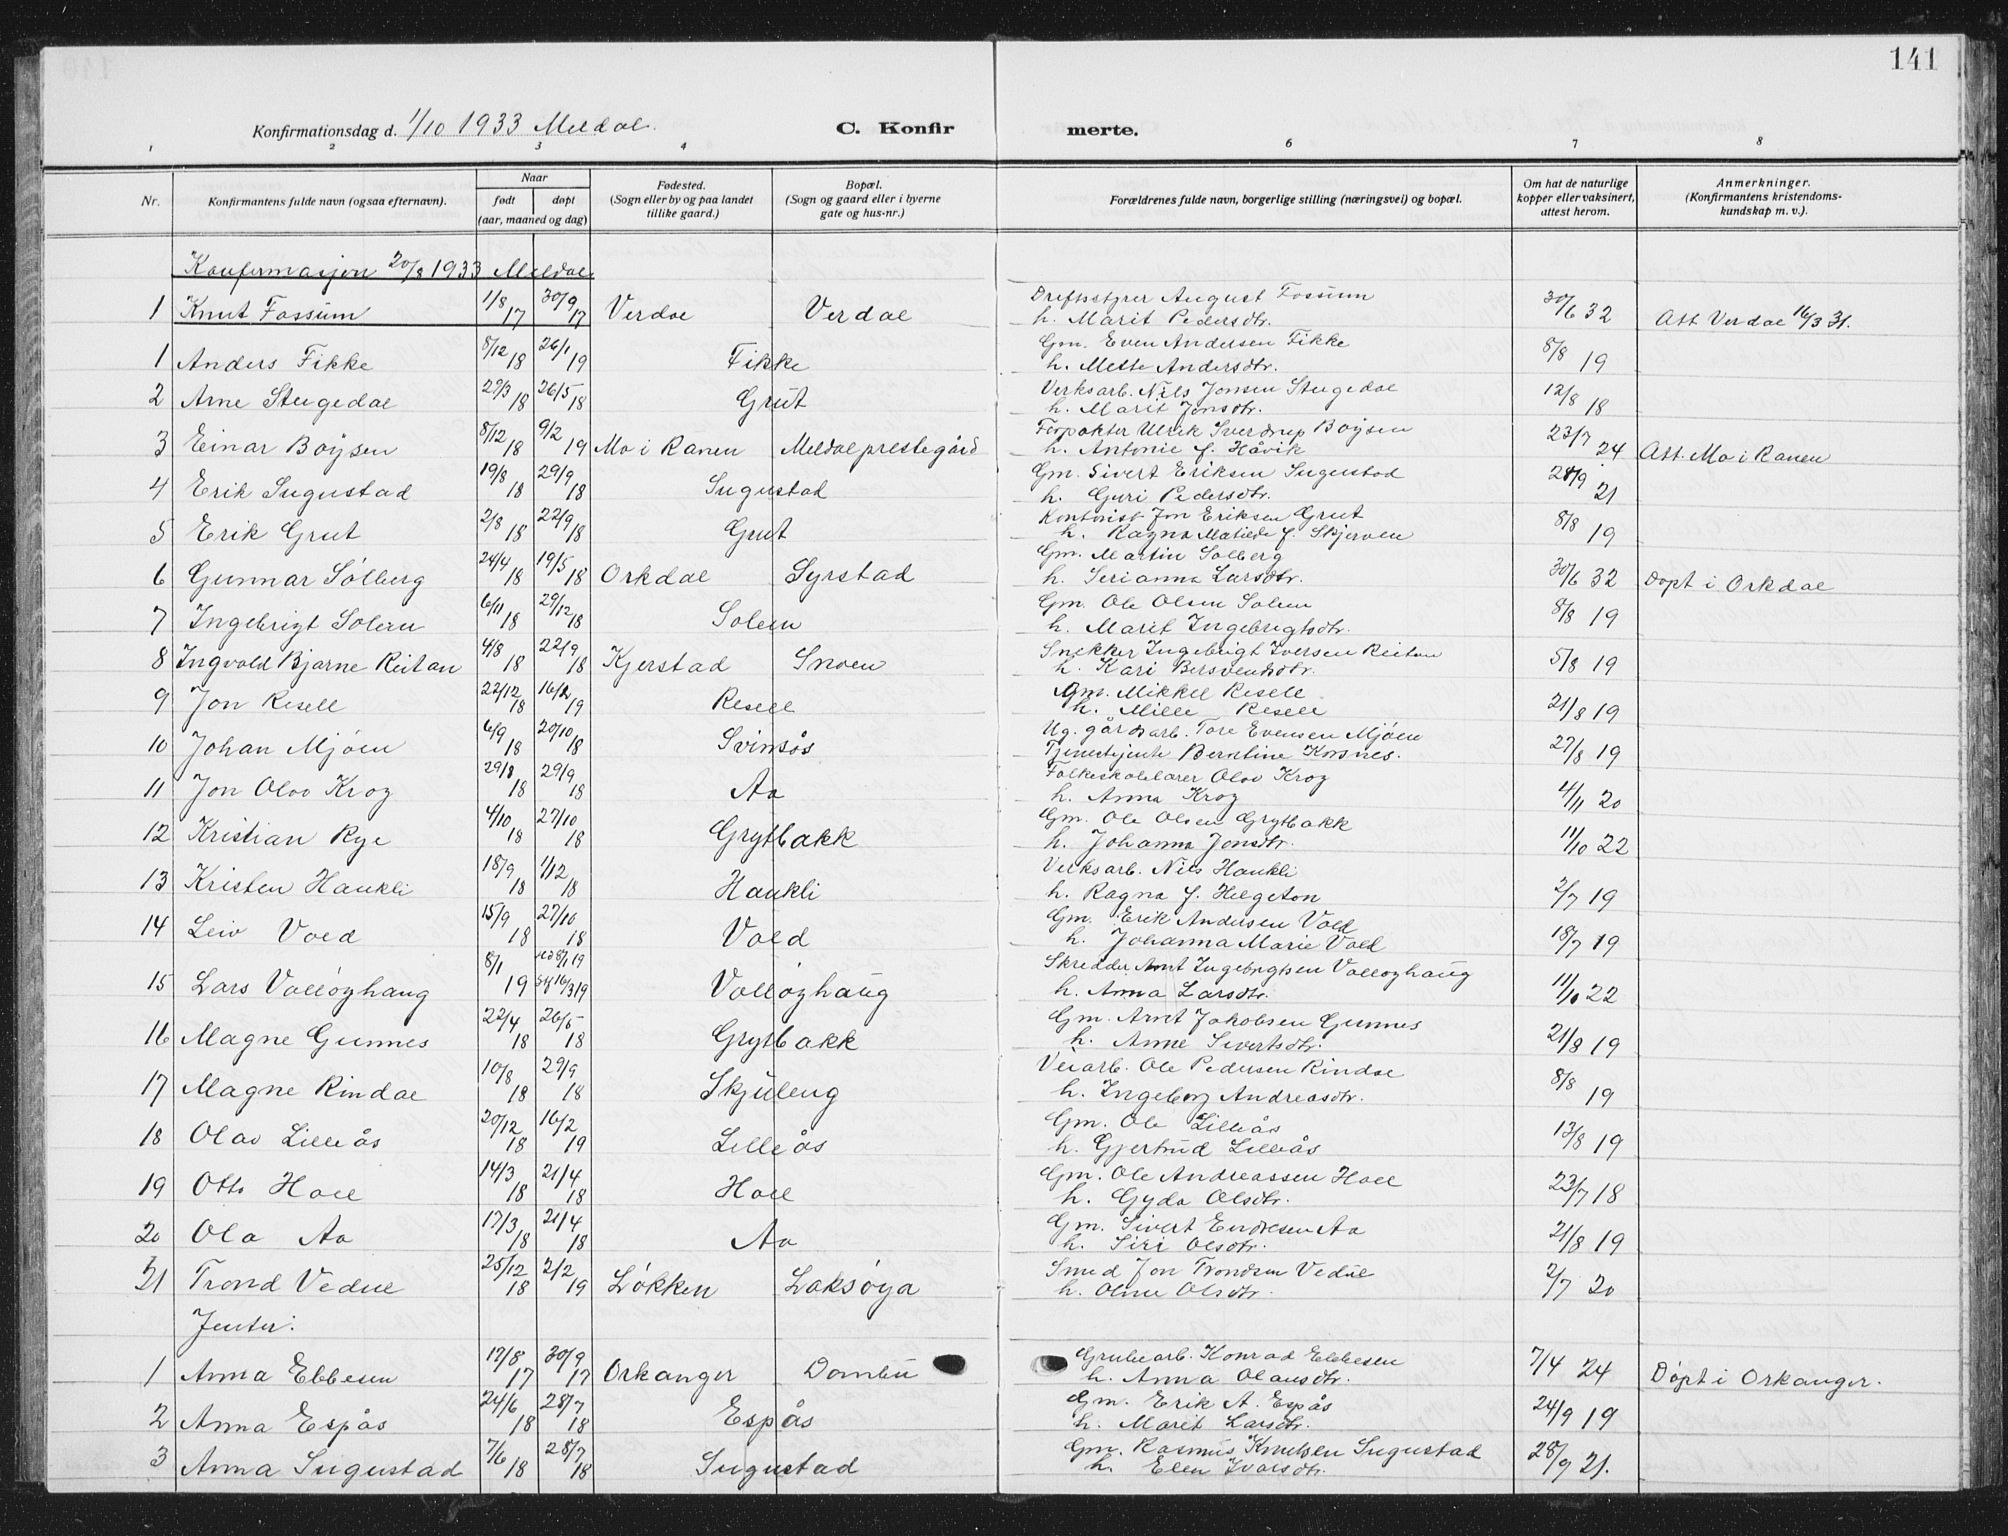 141
Konfirmationsdag d. 1/10 1933 Meldal. C. Konfirmerte.
1 2 3 4 6 7 8
Nr. Konfirmantens fulde navn (ogsaa efternavn). Naar født døpt (aar, maaned og dag) Fødested. (Sogn eller by og paa landet tillike gaard.) Bopæl. (Sogn og gaard eller i byerne gate og hus-nr.) Forældrenes fulde navn, borgerlige stilling (næringsvei) og bopæl. Om hat de naturlige kopper eller vaksinert, attest herom. Anmerkninger. (Konfirmantens kristendoms-kundskap m. v.).
Konfirmasjon 20/8 1933 Meldal
1 Knut Fossum 1/8 17 30/9 17 Verdal Verdal Driftsstyrer August Fossum h. Marit Pedersdtr. 30/6 32 Att Verdal 16/3 31.
1 Anders Fikke 8/12 18 26/1 19 Fikke Gm. Even Andersen Fikke h. Mette Andersdtr. 8/8 19
2 Arne Stugedal 29/3 18 26/5 18 Grut Verksarb. Nils Jonsen Stugedal h. Marit Jonsdtr. 12/8 18
3 Einar Boysen 8/12 18 9/2 19 Mo i Ranen Meldal prestegård Forpakter Ulrik Sverdrup Boysen h. Antonie f. Håvik 23/7 24 Att. Mo i Ranen
4 Erik Sugustad 19/8 18 29/9 18 Sugustad Gm. Sivert Eriksen Sugustad h. Guri Pedersdtr. 28/9 21
5 Erik Grut 2/8 18 22/9 18 Grut Kontorist Jon Eriksen Grut h. Ragna Matilde f. Skjerven 8/8 19
6 Gunnar Solberg 24/4 18 19/5 18 Orkdal Syrstad Gm. Martin Solberg h. Serianna Larsdtr. 30/6 32 Døpt i Orkdal
7 Ingebrigt Solem 6/11 18 29/12 18 Solem Gm. Ole Olsen Solem h. Marit Ingebrigtsdtr. 8/8 19
8 Ingvald Bjarne Reitan 4/8 18 22/9 18 Kjerstad Snoen Snekker Ingebrigt Iversen Reitan h. Kari Bersvendsdtr. 5/8 19
9 Jon Resell 22/12 18 16/2 19 Resell Gm. Mikkel Resell h. Mille Resell 21/8 19
10 Johan Mjøen 6/9 18 20/10 18 Svinsås Ug. gårdsarb. Tore Evensen Mjøen Tjenestjente Berntine Korsnes. 27/8 19
11 Jon Olav Krog 29/8 18 29/9 18 Aa Folkeskolelærer Olav Krog h. Anna Krog 4/11 20
12 Kristian Rye 4/10 18 27/10 18 Grytbakk Gm. Ole Olsen Grytbakk h. Johanna Jonsdtr. 11/10 22
13 Kristen Haukli 18/9 18 1/12 18 Haukli Verksarb. Nils Haukli h. Ragna f. Helgeton 2/7 19
14 Leiv Vold 15/9 18 27/10 18 Vold Gm. Erik Andersen Vold h. Johanna Marie Vold 18/7 19
15 Lars Volløyhaug 8/1 19 8/1 19 16/3 19 Volløyhaug Skredder Arnt Ingebrigtsen Volløyhaug h. Anna Larsdtr. 11/10 22
16 Magne Gunnes 22/4 18 26/5 18 Grytbakk Gm. Arnt Jakobsen Gunnes h. Anne Sivertsdtr. 21/8 19
17 Magne Rindal 10/8 18 29/9 18 Skjuleng Veiarb. Ole Pedersen Rindal h. Ingeborg Andreasdtr. 8/8 19
18 Olav Lilleås 20/12 18 16/2 19 Lilleås Gm. Ole Lilleås h. Gjertrud Lilleås 13/8 19
19 Otto Hoel 14/3 18 21/4 18 Hoel Gm. Ole Andreassen Hoel h. Gyda Olsdtr. 23/7 18
20 Ola Aa 17/3 18 21/4 18 Aa Gm. Sivert Endresen Aa h. Siri Olsdtr. 21/8 19
21 Trond Vedul 25/12 18 2/2 19 Løkken Laksøya Smed Jon Trondsen Vedul h. Oline Olsdtr. 2/7 20
Jenter:
1 Anna Ebbesen 17/8 17 30/9 17 Orkanger Dombu Grubearb. Konrad Ebbesen h. Anna Olausdtr. 7/4 24 Døpt i Orkanger.
2 Anna Espås 24/6 18 28/7 18 Espås Gm. Erik A. Espås h. Marit Larsdtr. 24/9 19
3 Anna Sugustad 7/6 18 28/7 18 Sugustad Gm. Rasmus Knutsen Sugustad h. Elen Ivarsdtr. 28/9 21.